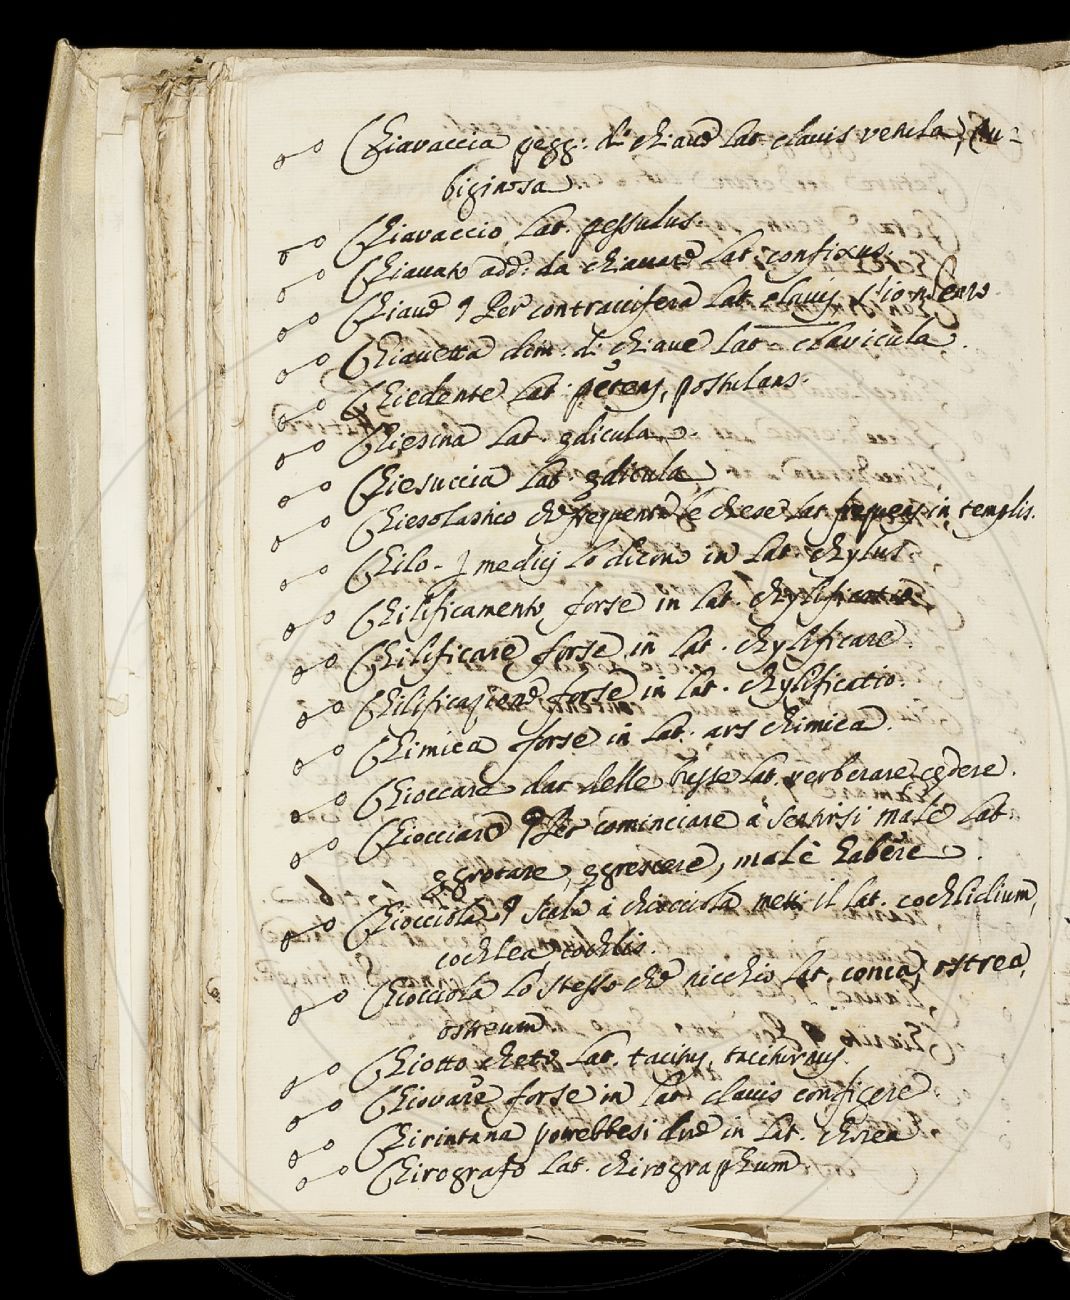 Chiavaccia pegg: di chiave Lat. clavis vetula, Ru-
biginosa.
Chiavaccio Lat. pessulus.
Chiauato add: da chiauare Lat. confixus.
Chiaue § Per contraccifera Lat. clavis
Chiauetta dim: di chiaue Lat. clavicula.
Chiedente Lat. petens, postulans.
Chiesina Lat. ędicula.
Chiesuccia Lat. ędicula
Chiesolastico che frequenta le chiese Lat. frequens in templis.
Chilo - I medici lo dicon in Lat. chylus.
Chilificamento forse in Lat.
Chilificare forse in Lat. chylificare.
Chilificazione forse in Lat. chylificatio.
Chimica forse in Lat. ars chimica.
Chioccare dar delle busse Lat. verberare, cędere.
Chiocciare § Per cominciare à sentirsi male Lat.
ęgrotare, ęgrescere, malè habere.
Chiocciola § Scala à chiocciola metti il Lat. cochlidium,
cochlea, cochlis.
Chiocciola lo stesso che nicchio Lat. conca, ostrea,
ostreum
Chiotto cheto Lat. tacitus, taciturnus.
Chiovare forse in Lat. clauis conficere.
Chirintana potrebbesi dire in Lat.
Chirografo Lat. chirographum